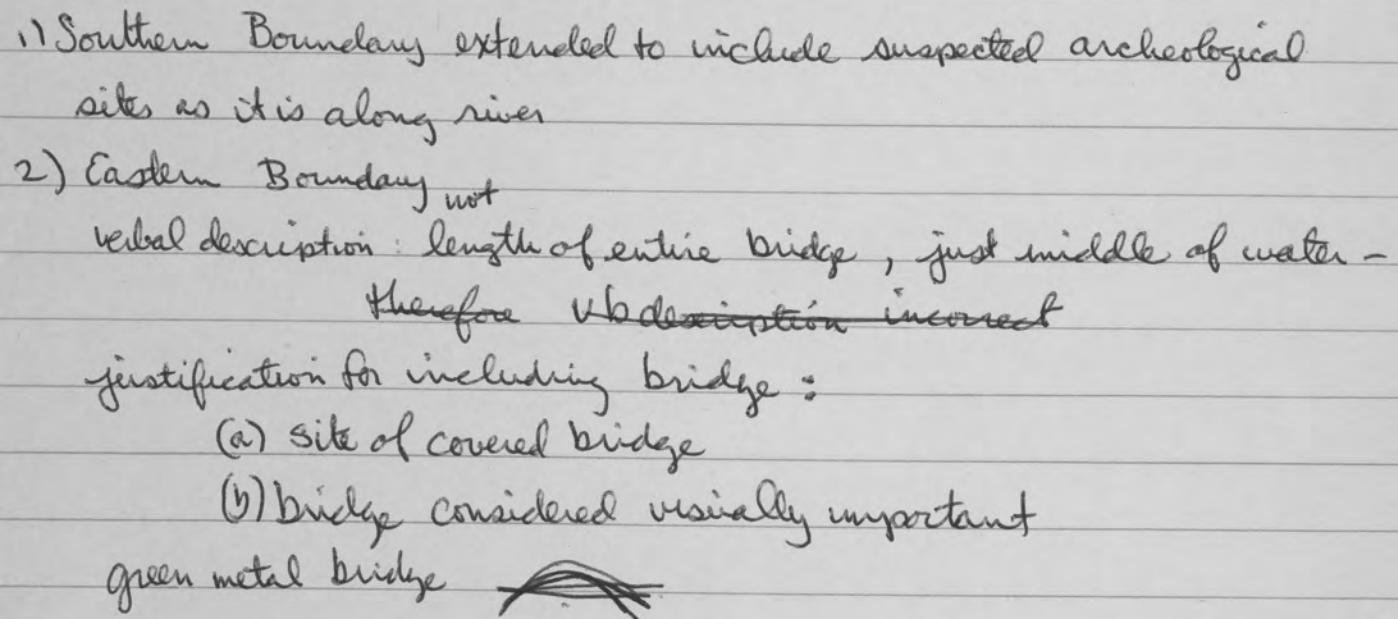 1) Southern Boundary extended to include suspected archeological
sites as it is along river
2) Eastern Boundary
not
verbal description: length of entire bridge, just middle of water -
therefore vb description incorrect
justification for including bridge:
(a) site of covered bridge
(b) bridge considered visually important
green metal bridge